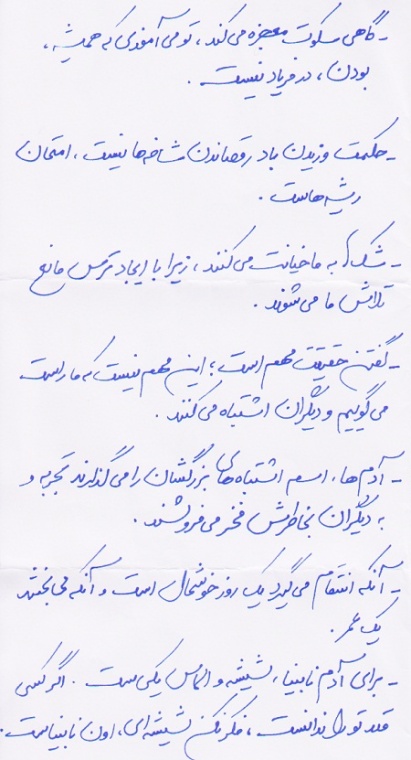 - گاهی سکوت معجزه می‌کند، تو می‌آموزی که همیشه،
بودن، در فریاد نیست.
- حکمت وزیدن باد رقصاندن شاخه‌ها نیست، امتحان
ریشه‌هاست.
- شک‌ها به ما خیانت می‌کنند، زیرا با ایجاد ترس مانع
تلاش ما می‌شوند.
- گفتن حقیقت مهم است؛ این مهم نیست که ما راست
می‌گوییم و دیگران اشتباه می‌کنند.
- آدم‌ها، اسم اشتباه‌های بزرگشان را می‌گذارند تجربه و
به دیگران بخاطرش فخر می‌فروشند.
- آنکه انتقام می‌گیرد یک روز خوشحال است و آنکه می‌بخشد
یک عمر.
- برای آدم نابینا، شیشه و الماس یکی‌ست. اگر کسی
قدر تو را ندانست، فکر نکن شیشه‌ای، اون نابیناست.